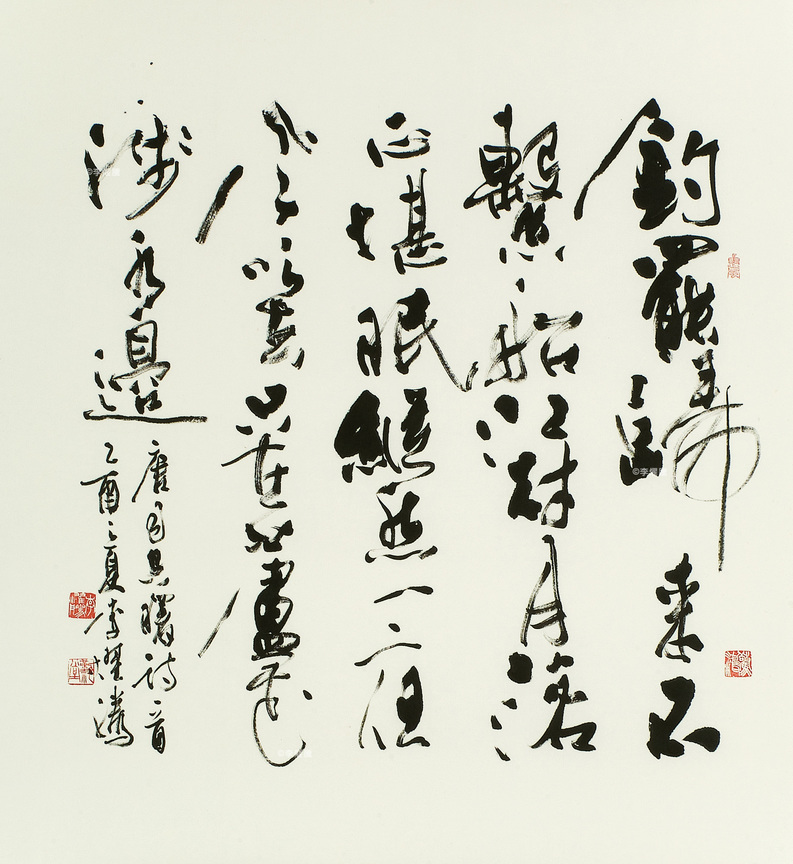 釣罷歸來不
繫船江村月落
正堪眠縱然一夜
風吹去只在蘆花
淺水邊
唐司空曙詩一首
乙酉之夏李